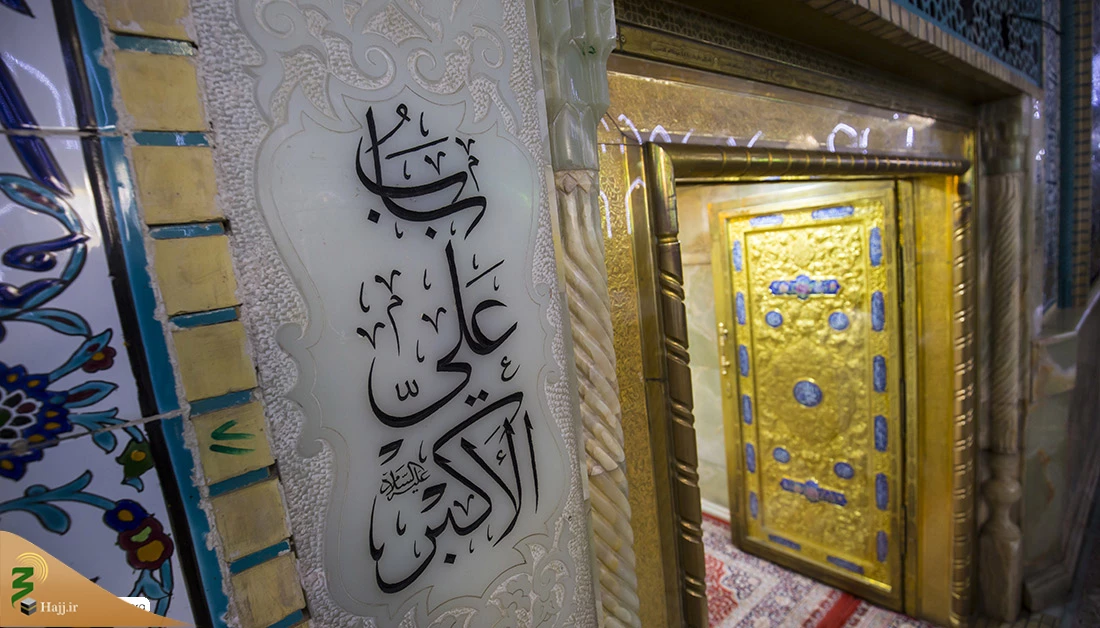 بابُ
عَلِيّ
الأَكبَر
عليه السلام
٧
Hajj.ir